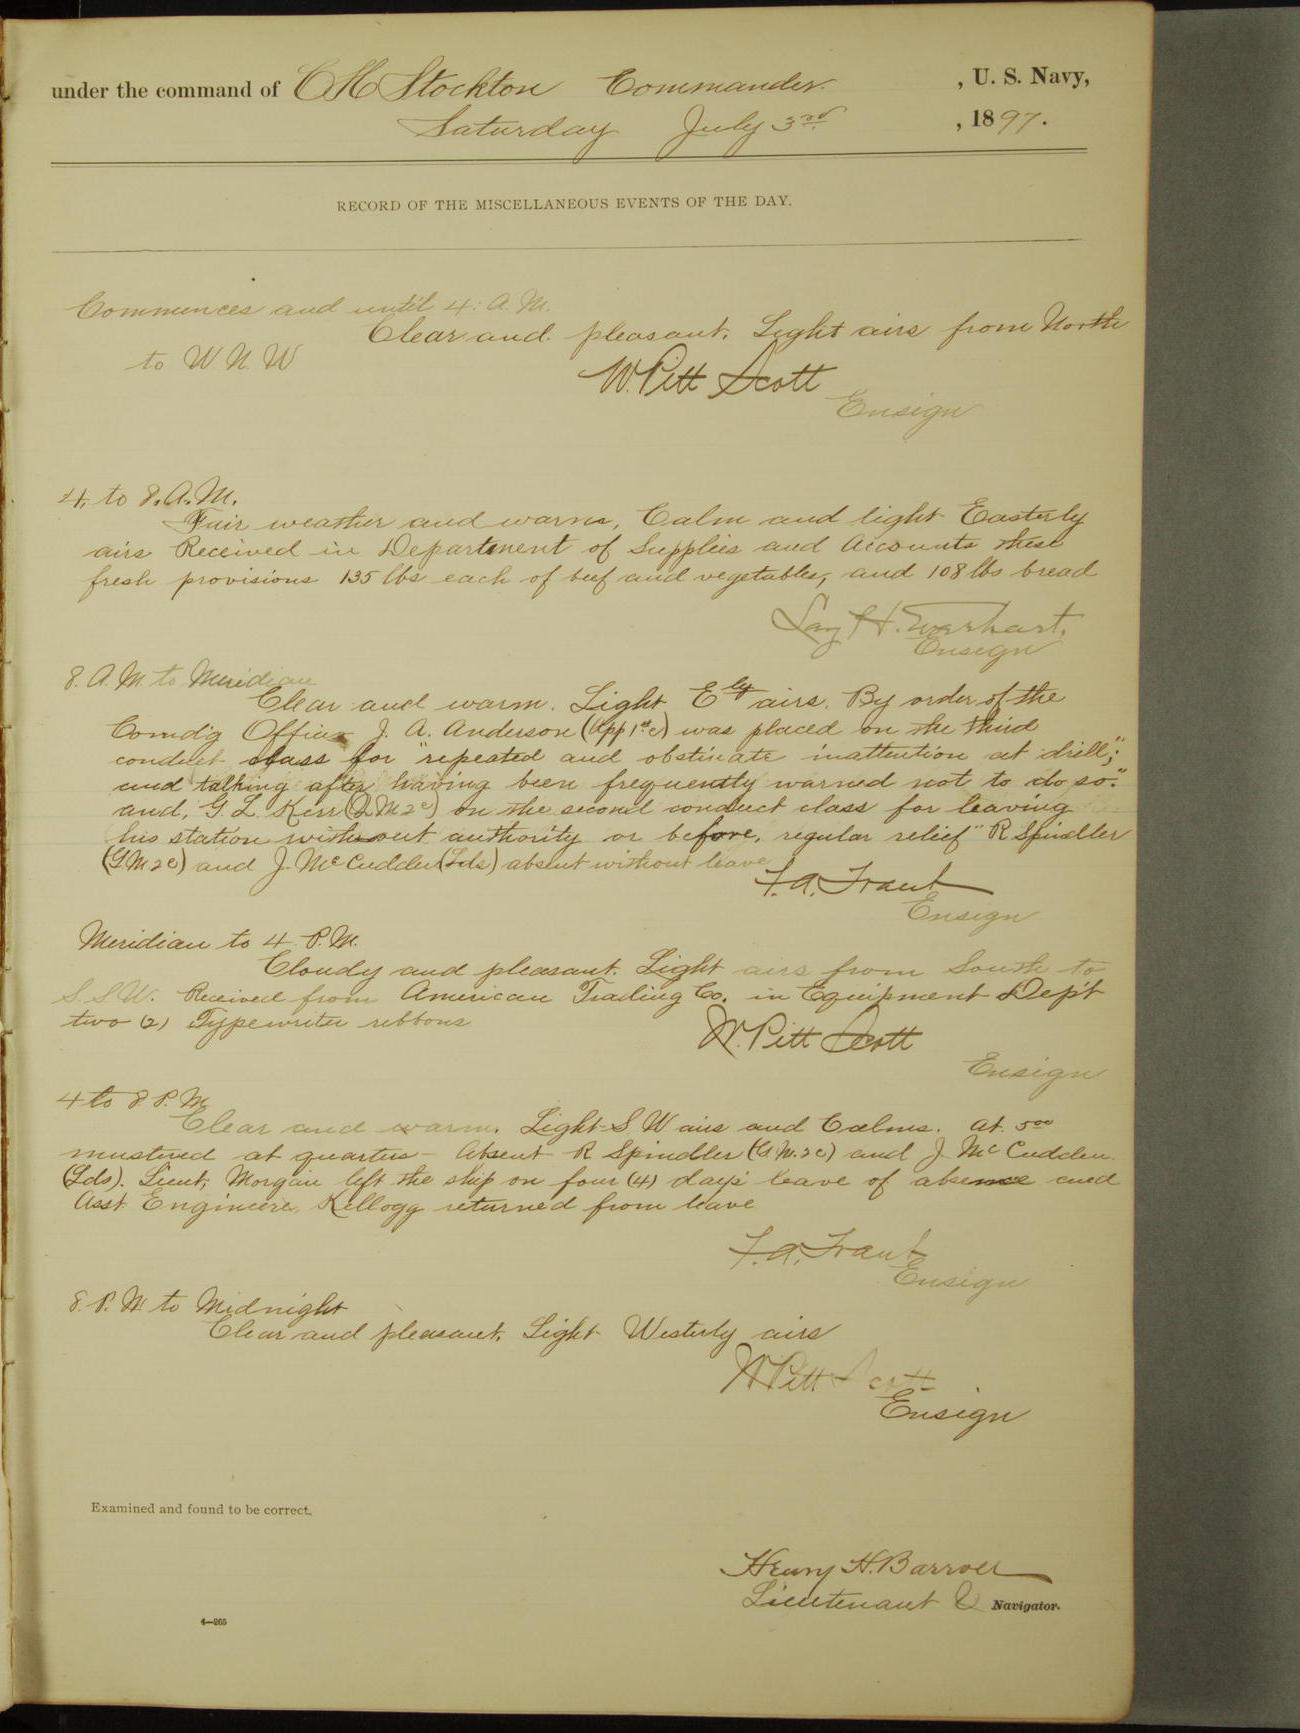 under the command of C H Stockton Commander. , U. S. Navy,
Saturday July 3rd. , 1897.
RECORD OF THE MISCELLANEOUS EVENTS OF THE DAY.
Commences and until 4. A. M.
Clear and pleasant. Light airs from North
to W N W
W. Pitt Scott
Ensign
4. to 8. A. M.
Fair weather and warm, Calm and light Easterly
airs Received in Department of Supplies and Accounts these
fresh provisions 135 lbs each of beef and vegetables, and 108 lbs bread
Lay H. Everhart.
Ensign
8. A. M. to Meridian
Clear and warm. Light Ely airs. By order of the
Comd'g Officer J. A. Anderson (App 1st c) was placed on the third
conduct class for "repeated and obstinate inattention at drill";
and talking after having been frequently warned not to do so."
and, G. L. Kerr (Q M 2c) on the second conduct class for leaving
his station without authority or before, regular relief" R Spindler
(G M 2c) and J. McCudden (Lds) absent without leave
F. A. Traut
Ensign
Meridian to 4 P. M.
Cloudy and pleasant. Light airs from South to
S. S W. Received from American Trading Co. in Equipment Dep't
two (2) Typewriter ribbons
W. Pitt Scott
Ensign
4 to 8 P. M.
Clear and warm. Light S W airs and Calms. At 5 00
mustered at quarters - Absent R Spindler (G M. 2c) and J. McCudden
(Lds). Lieut. Morgan left the ship on four (4) days leave of absence and
Asst. Engineer Kellogg returned from leave
F. A. Traut
Ensign
8. P. M. to Midnight
Clear and pleasant. Light Westerly airs
W Pitt Scott
Ensign
Examined and found to be correct.
Henry H. Barroll
Lieutenant & Navigator.
4—265